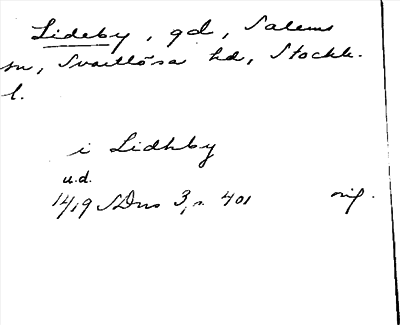 Lideby, gd, Salems
sn, Svartlösa hd, Stockh.
l.
i Lidhby
u.d.
1419 SDns 3, s. 401 orig.